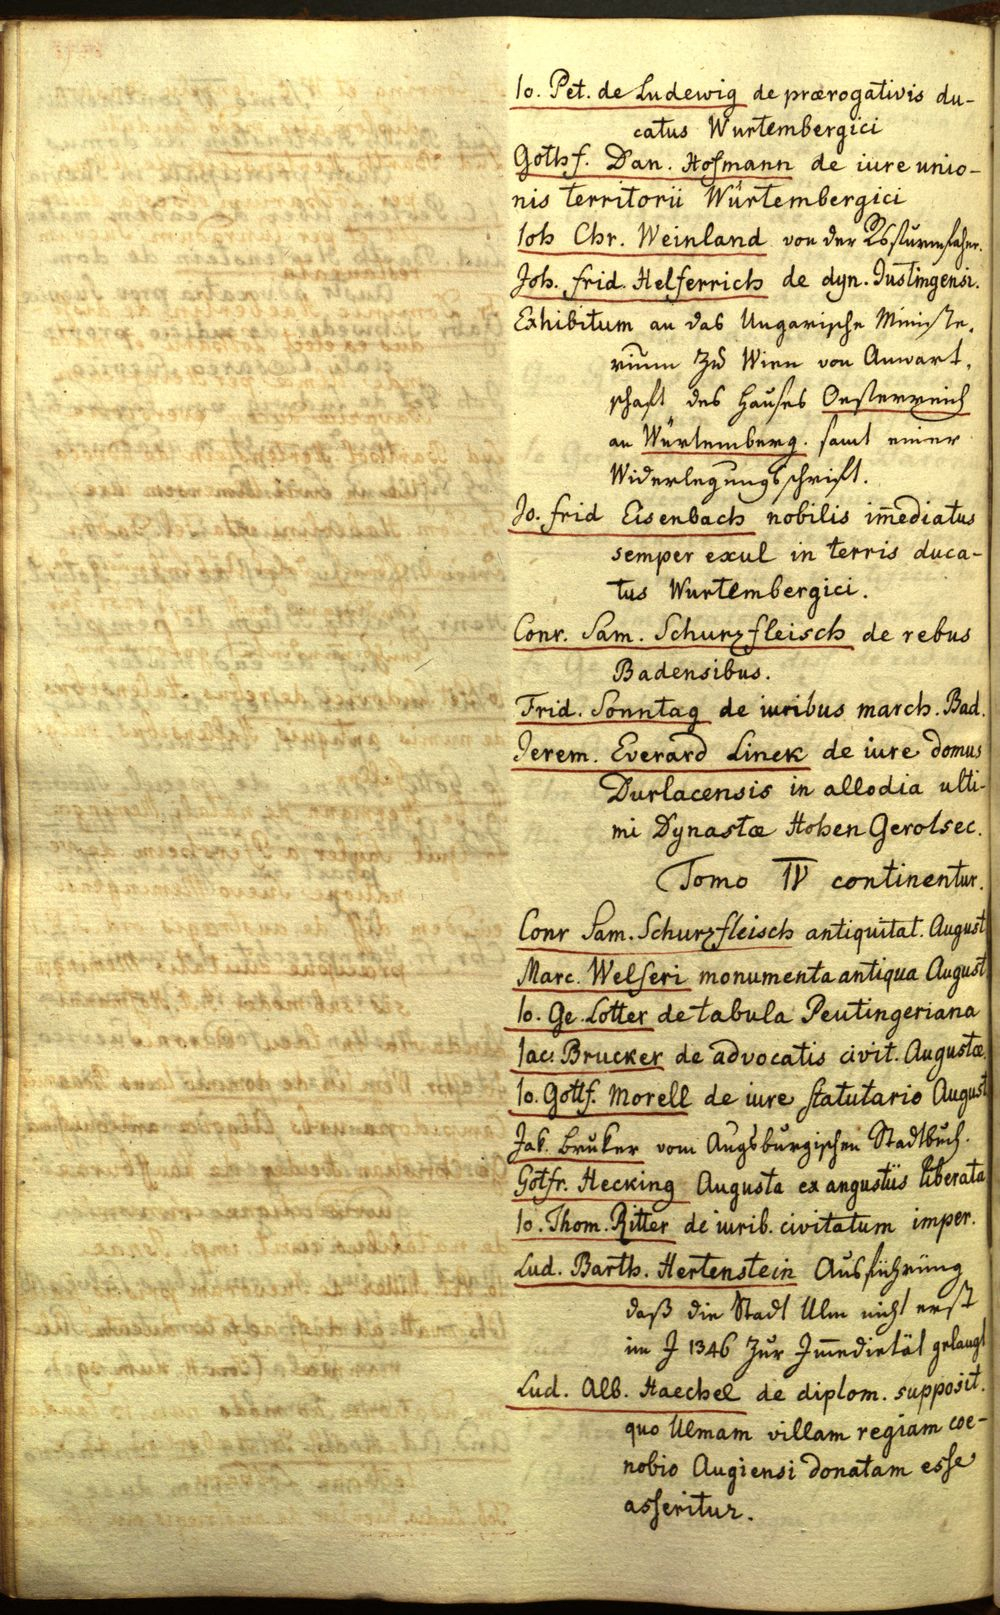 Io. Pet. de Ludewig de prærogativis du-
catus Wurtembergici
Gothf. Dan. Hofmann de iure unio-
nis territorii Würtembergici
Ioh Chr. Weinland von der Rssturmfahn.
Joh. frid. Helferrich de dyn. Justingensi.
Exhibitum an das Ungarische Ministe,
rium zu Wien von Anwart,
schaft des Hauses Oesterreich
an Würtemberg. samt einer
Widerlegungsschrift.
Jo. frid Eisenbach nobilis im̅ediatus
semper exul in terris duca-
tus Wurtembergici.
Conr. Sam. Schurzfleisch de rebus
Badensibus.
Frid. Sonntag de iuribus march. Bad.
Jerem. Everard Linck de iure domus
Durlacensis in allodia ulti-
mi Dynastæ Hohen Gerolsec.
Tomo IV continentur.
Conr Sam. Schurzfleisch antiquitat. August
Marc. Welseri monumenta antiqua August
Io. Ge. Lotter de tabula Peutingeriana
Iac: Brucker de advocatis civit. Augustæ.
Io. Gottf. Morell de iure statutario August
Jak. Bruker vom Augsburgischen Stadtbuch.
Gotfr. Hecking Augusta ex angustiis liberata
Io. Thom. Ritter de iurib. civitatum imper.
Lud. Barth. Hertenstein Ausführung
daß die Stadt Ulm nicht erst
im J 1346 zur Im̅edietät gelangt
Lud. Alb. Haechel de diplom. supposit.
quo Ulmam villam regiam coe-
nobio Augiensi donatam esse
asseritur.